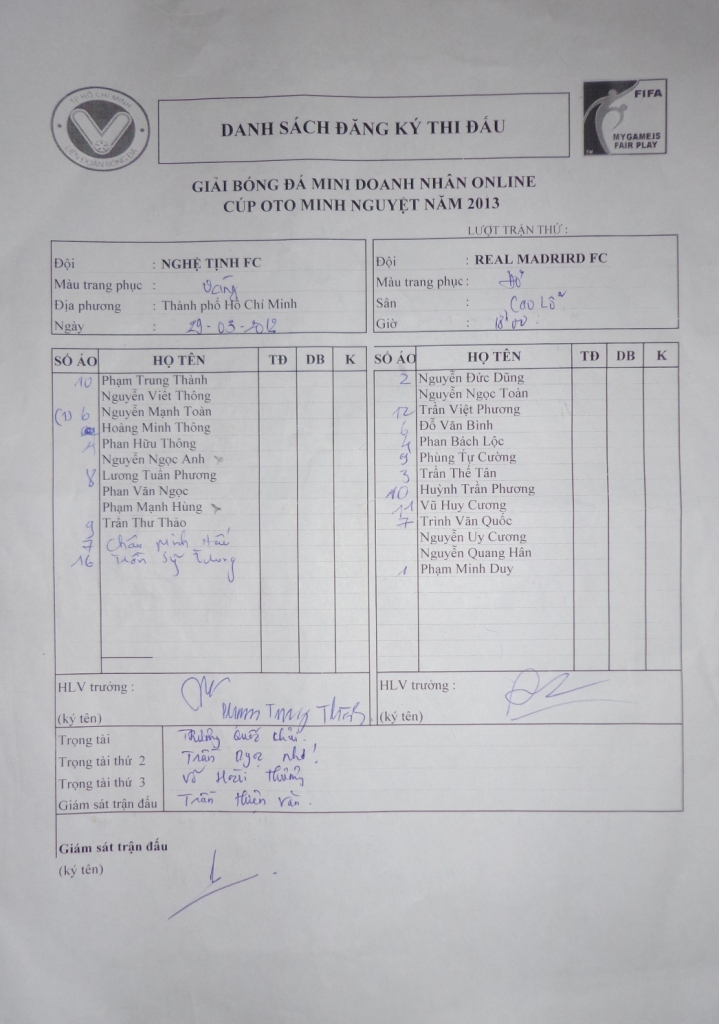 TP HỒ CHÍ MINH
LIÊN ĐOÀN BÓNG ĐÁ
DANH SÁCH ĐĂNG KÝ THI ĐẤU
FIFA
MY GAME IS
FAIR PLAY
GIẢI BÓNG ĐÁ MINI DOANH NHÂN ONLINE
CÚP OTO MINH NGUYỆT NĂM 2013
LƯỢT TRẬN THỨ :
Đội : NGHỆ TỊNH FC
Màu trang phục : Vàng
Địa phương : Thành phố Hồ Chí Minh
Ngày : 29-03-2012
Đội : REAL MADRIRD FC
Màu trang phục : Đỏ
Sân : Cao Lỗ
Giờ : 18h00
SỐ ÁO HỌ TÊN TĐ DB K
10 Phạm Trung Thành
Nguyễn Viết Thông
(1) 6 Nguyễn Mạnh Toàn
Hoàng Minh Thông
4 Phan Hữu Thông
Nguyễn Ngọc Anh
8 Lương Tuấn Phương
Phan Văn Ngọc
Phạm Mạnh Hùng
9 Trần Thư Thảo
7 Châu Minh Huế
16 Trần Sỹ
SỐ ÁO HỌ TÊN TĐ DB K
2 Nguyễn Đức Dũng
Nguyễn Ngọc Toàn
12 Trần Việt Phương
6 Đỗ Văn Bình
4 Phan Bách Lộc
9 Phùng Tự Cường
3 Trần Thế Tân
10 Huỳnh Trần Phương
11 Vũ Huy Cương
7 Trịnh Văn Quốc
Nguyễn Uy Cương
Nguyễn Quang Hân
1 Phạm Minh Duy
HLV trưởng :
(ký tên) Phạm Trung Thành
HLV trưởng :
(ký tên)
Trọng tài Trương Quốc
Trọng tài thứ 2 Trần Ngọc Nhớ
Trọng tài thứ 3 Võ Hoài Thương
Giám sát trận đấu Trần Hiền Vân
Giám sát trận đấu
(ký tên)